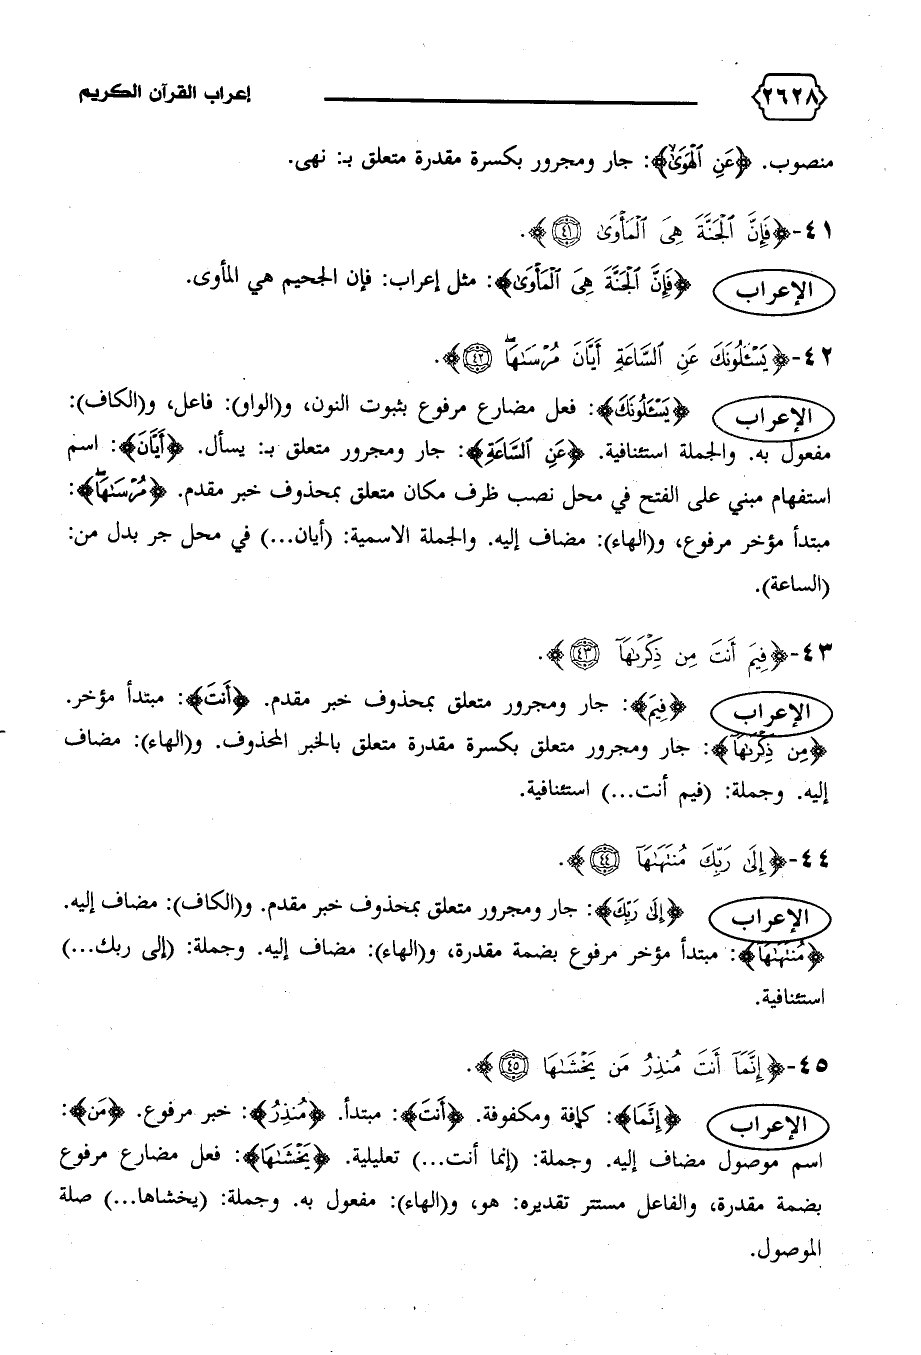 ٢٦٢٨ إعراب القرآن الكريم
منصوب. ﴿عَنِ الْهَوَىٰ﴾: جار ومجرور بكسرة مقدرة متعلق بـ: نهى.
٤١-﴿فَإِنَّ ٱلْجَنَّةَ هِىَ ٱلْمَأْوَىٰ ٤١﴾.
الإعراب ﴿فَإِنَّ ٱلْجَنَّةَ هِىَ ٱلْمَأْوَىٰ﴾: مثل إعراب: فإن الجحيم هي المأوى.
٤٢-﴿يَسْـَٔلُونَكَ عَنِ ٱلسَّاعَةِ أَيَّانَ مُرْسَىٰهَا ٤٢﴾.
الإعراب ﴿يَسْـَٔلُونَكَ﴾: فعل مضارع مرفوع بثبوت النون، و(الواو): فاعل، و(الكاف):
مفعول به. والجملة استئنافية. ﴿عَنِ ٱلسَّاعَةِ﴾: جار ومجرور متعلق بـ: يسأل. ﴿أَيَّانَ﴾: اسم
استفهام مبني على الفتح في محل نصب ظرف مكان متعلق بمحذوف خبر مقدم. ﴿مُرْسَىٰهَا﴾:
مبتدأ مؤخر مرفوع، و(الهاء): مضاف إليه. والجملة الاسمية: (أيان...) في محل جر بدل من:
(الساعة).
٤٣-﴿فِيمَ أَنتَ مِن ذِكْرَىٰهَآ ٤٣﴾.
الإعراب ﴿فِيمَ﴾: جار ومجرور متعلق بمحذوف خبر مقدم. ﴿أَنتَ﴾: مبتدأ مؤخر.
﴿مِن ذِكْرَىٰهَآ﴾: جار ومجرور متعلق بكسرة مقدرة متعلق بالخبر المحذوف. و(الهاء): مضاف
إليه. وجملة: (فيم أنت...) استئنافية.
٤٤-﴿إِلَىٰ رَبِّكَ مُنتَهَىٰهَآ ٤٤﴾.
الإعراب ﴿إِلَىٰ رَبِّكَ﴾: جار ومجرور متعلق بمحذوف خبر مقدم. و(الكاف): مضاف إليه.
﴿مُنتَهَىٰهَآ﴾: مبتدأ مؤخر مرفوع بضمة مقدرة، و(الهاء): مضاف إليه. وجملة: (إلى ربك...)
استئنافية.
٤٥-﴿إِنَّمَآ أَنتَ مُنذِرُ مَن يَخْشَىٰهَا ٤٥﴾.
الإعراب ﴿إِنَّمَا﴾: كافة ومكفوفة. ﴿أَنتَ﴾: مبتدأ. ﴿مُنذِرُ﴾: خبر مرفوع. ﴿مَن﴾:
اسم موصول مضاف إليه. وجملة: (إنما أنت...) تعليلية. ﴿يَخْشَىٰهَا﴾: فعل مضارع مرفوع
بضمة مقدرة، والفاعل مستتر تقديره: هو، و(الهاء): مفعول به. وجملة: (يخشاها...) صلة
الموصول.